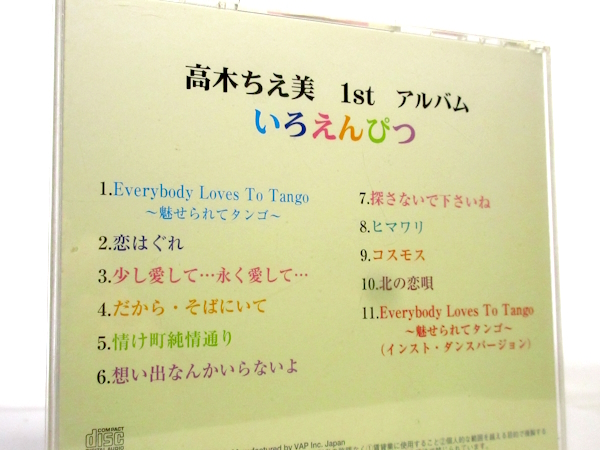 高木ちえ美 1st アルバム
いろえんぴつ
1.Everybody Loves To Tango
～魅せられてタンゴ～
2.恋はぐれ
3.少し愛して…永く愛して…
4.だから・そばにいて
5.情け町純情通り
6.想い出なんかいらないよ
7.探さないで下さいね
8.ヒマワリ
9.コスモス
10.北の恋唄
11.Everybody Loves To Tango
～魅せられてタンゴ～
(インスト・ダンスバージョン)
COMPACT
disc
DIGITAL AUDIO
Manufactured by VAP Inc. Japan